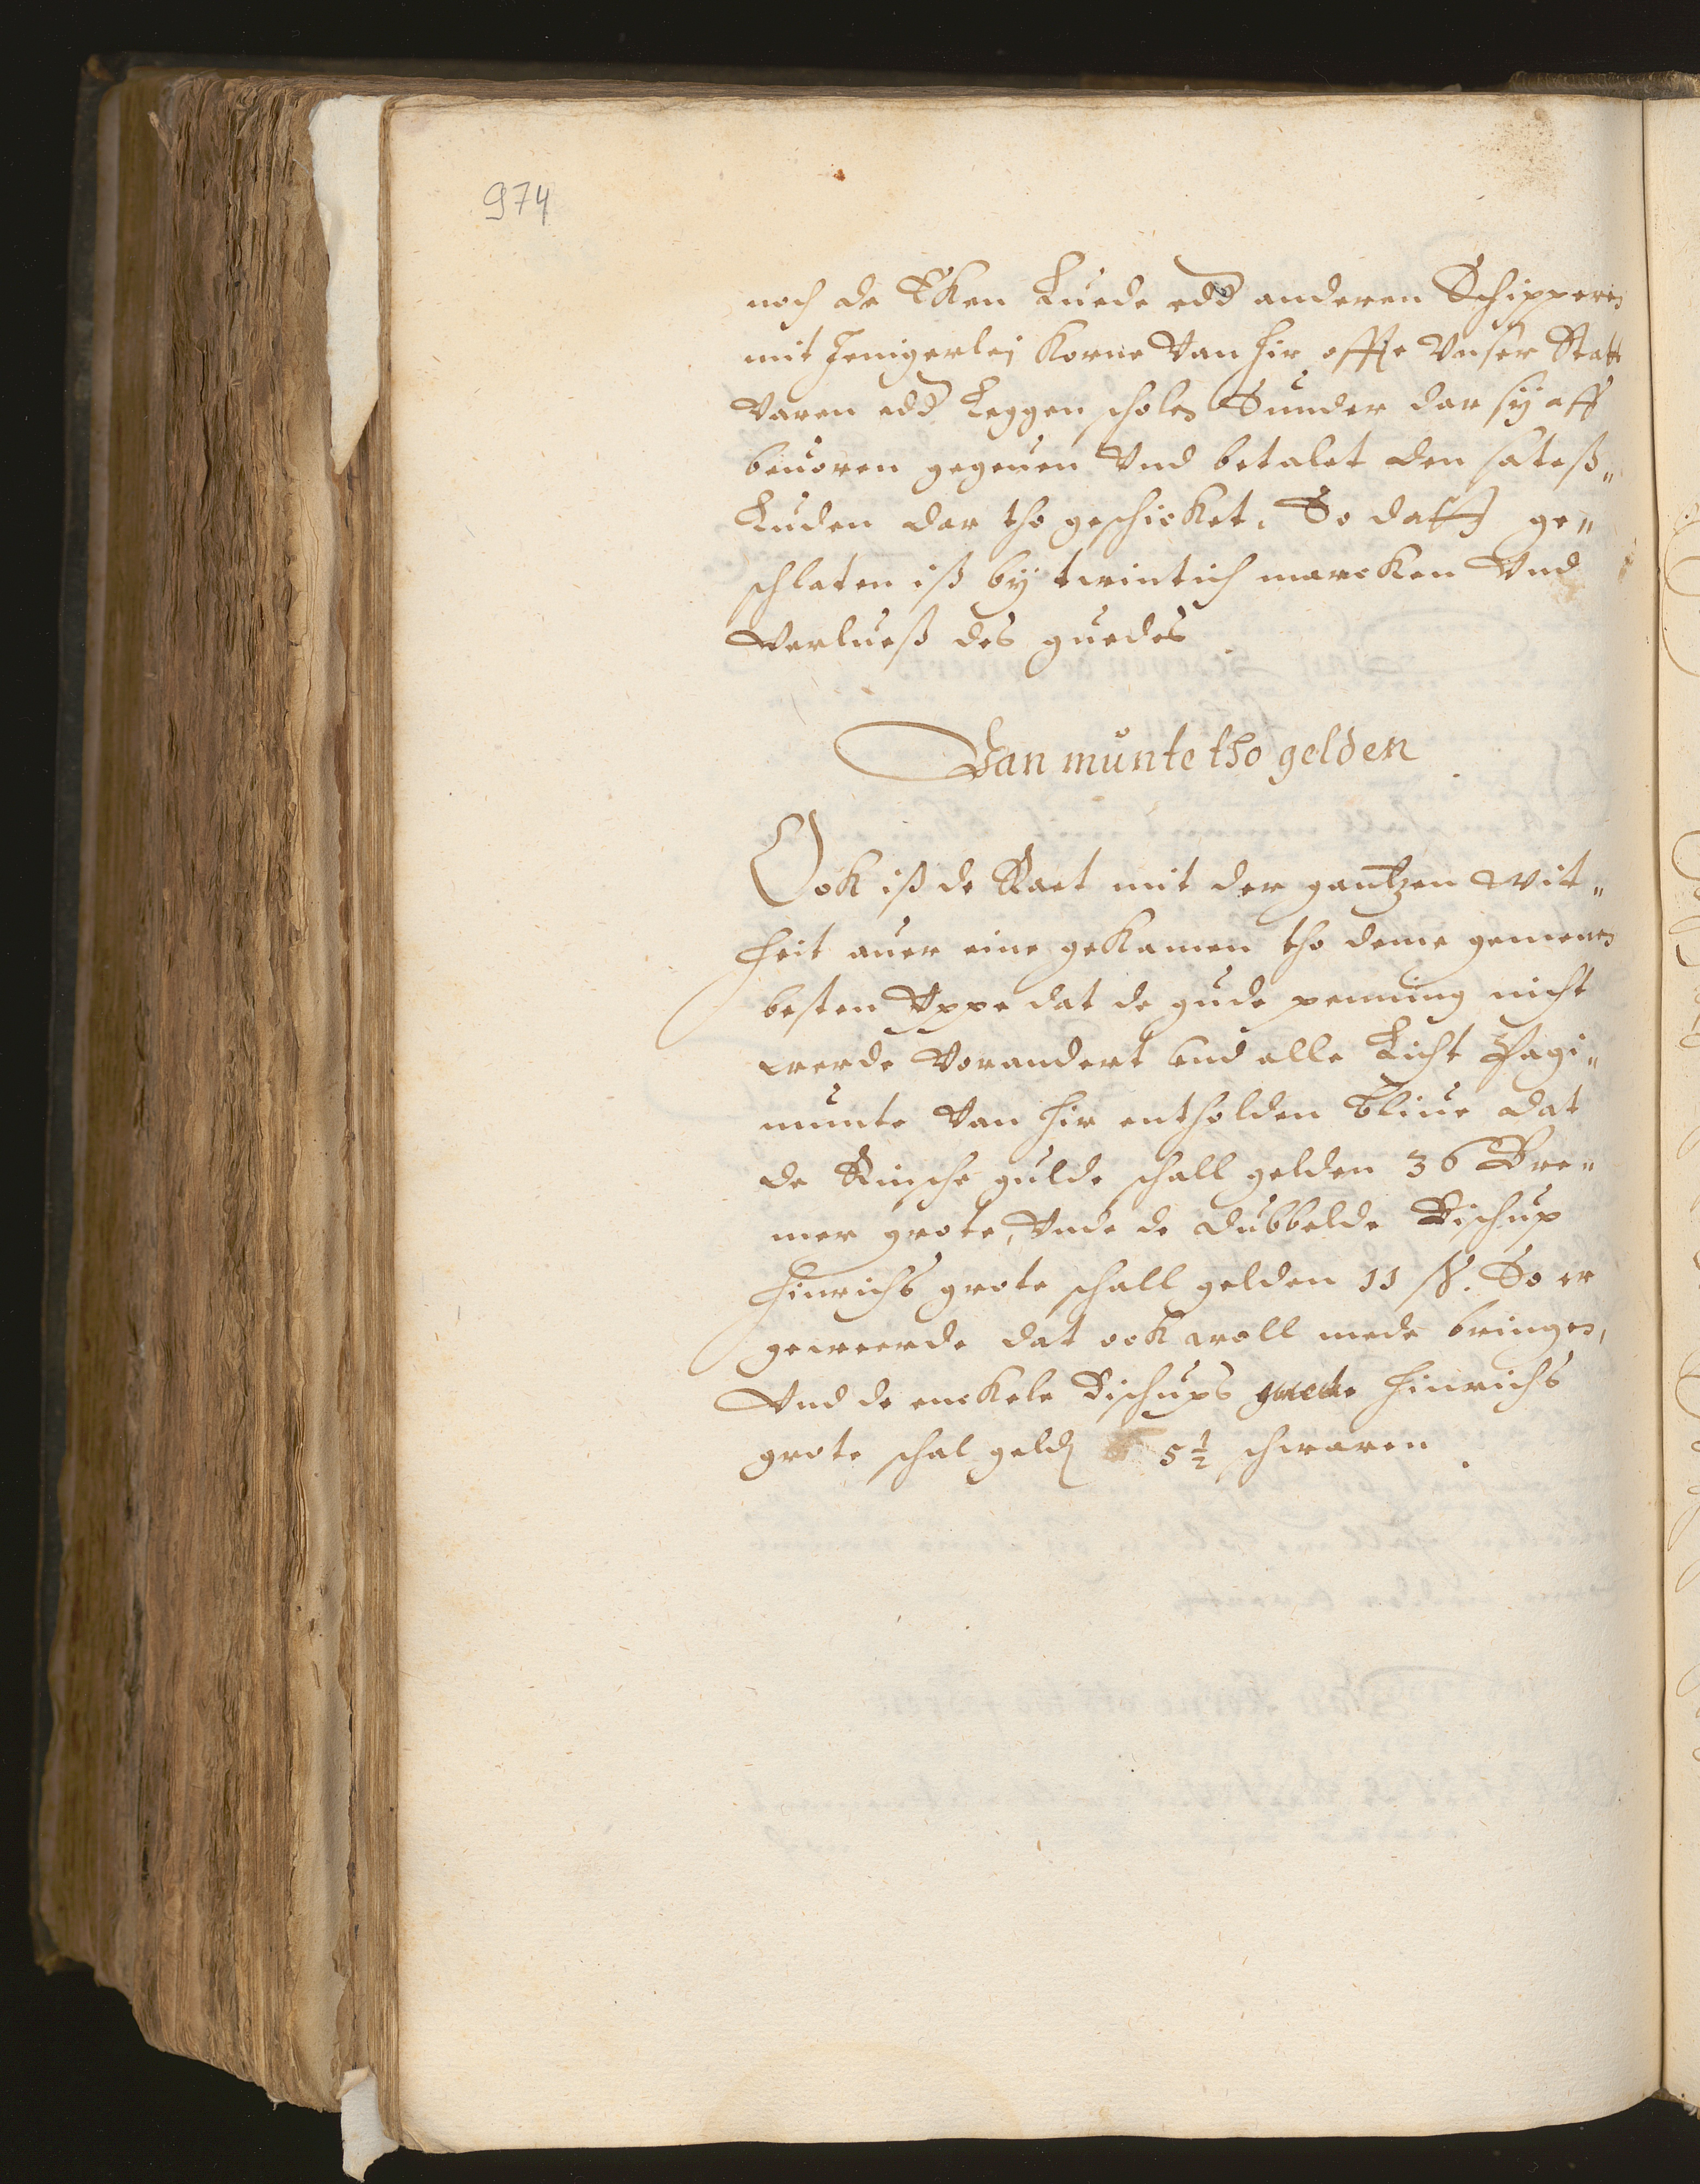 974
noch de Eken Luede edd anderen Schipperen
mit Jenigerlej Korne Van hir offte Vnser Statt
Varen edd Leggen scholen Sunder dar sy aff
beuoren gegeuen Vnd betalet den sateß„
Luden dar tho geschicket. So daff ge„
schlaten iß by twintich marcken Vnd
Verlueß des guedes
Van munte tho gelden
Ook iß de Raet mit der gantzen Wit„
heit auer eine gekamen tho deme gemenen
besten Vppe dat de gude penning nicht
werde Vorandert vnd alle Licht Pagi„
munte Van hir entholden bliue dat
de Rinsche gulde schall gelden 36 Bre„
mer grote, Vnde de dubbelde Bischup
Hinrichs grote schall gelden 11 ß. So er
geweerde dat ook woll mede bringen,
Vnd de enckele Bischups Hinrichs
grote schal geld 5½ schwaren